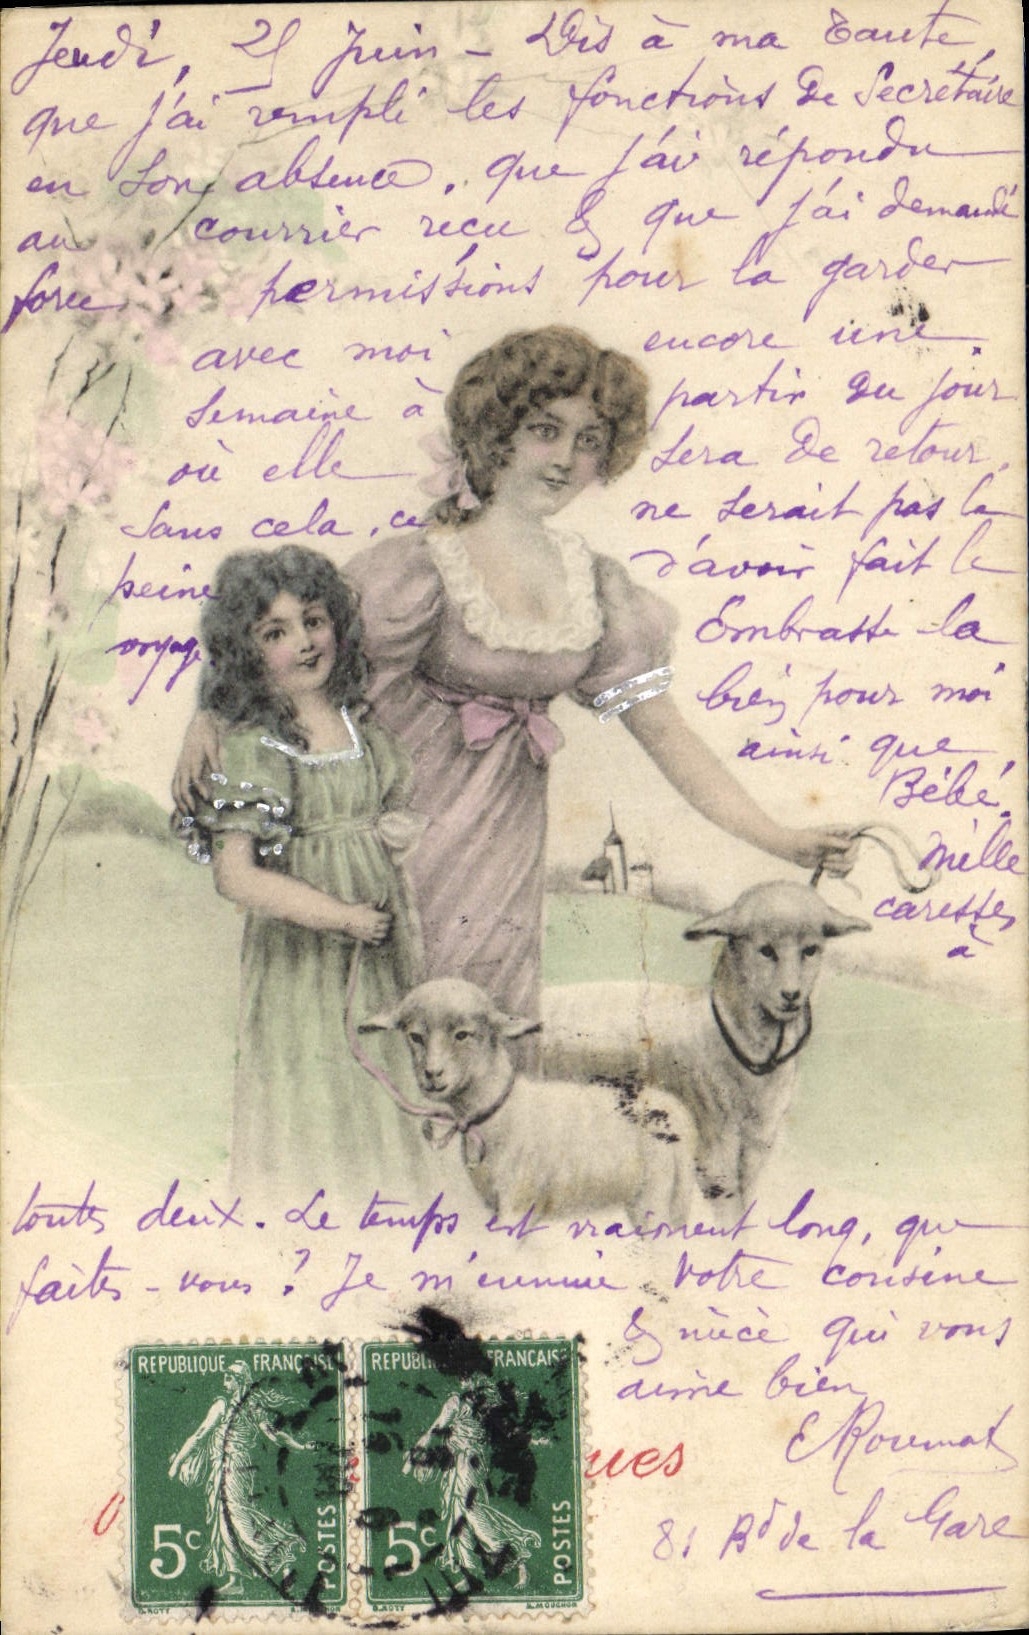 Jeudi, 25 Juin - Dis à ma Tante,
que j'ai rempli les fonctions de Secrétaire
en son absence, que j'ai répondu
au courrier reçu & que j'ai demandé
force permissions pour la garder
avec moi encore une
semaine à partir du jour
où elle sera de retour,
sans cela, ce ne serait pas la
peine d'avoir fait le
voyage. Embrasse la
bien pour moi
ainsi que
Bébé.
Mille
caresses
à
toutes deux. Le temps est vraiment long, que
faites-vous? Je m'ennuie Votre cousine
& nièce qui vous
aime bien
E Roumat
81 Bd de la Gare
REPUBLIQUE FRANÇAISE
5c
POSTES
REPUBLIQUE FRANÇAISE
5c
POSTES
ues